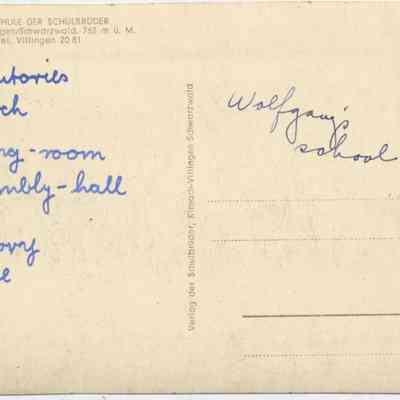 HULE DER SCHULBRÜDER
gen/Schwarzwald, 763 m ü. M.
Villingen 2081
utories
ch
ng-room
mbly-hall
Verlag der Schulbrüder, Kirnach-Villingen Schwarzwald
Wolfgang's
school